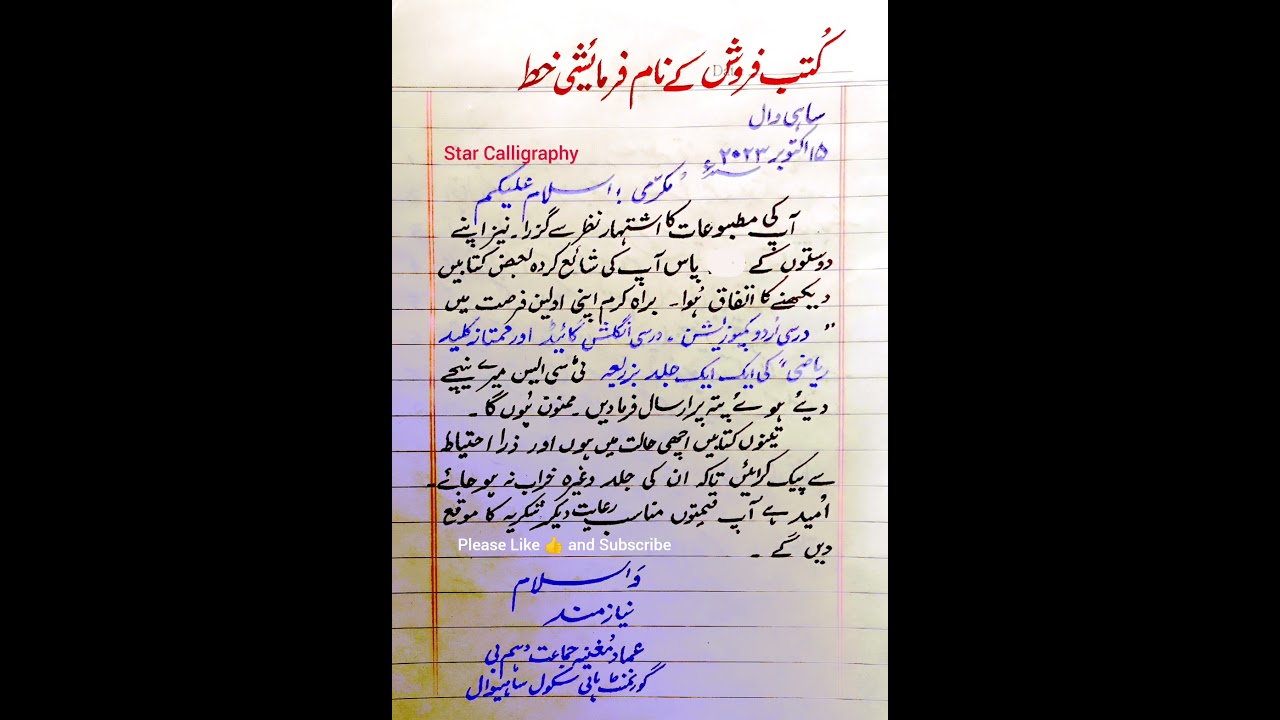 کُتب فروش کے نام فرمائشی خط
ساہی وال
۱۵ اکتوبر ۲۰۲۳ء
Star Calligraphy
مکرّمی ! اسلام علیکم
آپ کی مطبوعات کا اشتہار نظر سے گزرا۔ نیز اپنے
دوستوں کے پاس آپ کی شائع کردہ بعض کتابیں
دیکھنے کا اتفاق ہُوا۔ براہ کرم اپنی اولین فرصت میں
" درسی اُردو کمپوزیشن ۔ درسی انگلش گائیڈ اور ممتاز کلید
ریاضی" کی ایک ایک جلد بزریعہ ٹی سی ایس میرے نیچے
دیئے ہوئے پتہ پر ارسال فرما دیں۔ ممنون ہُوں گا۔
تینوں کتابیں اچھی حالت میں ہوں اور ذرا احتیاط
سے پیک کرائیں تاکہ ان کی جلد وغیرہ خراب نہ ہو جائے۔
اُمید ہے آپ قیمتوں مناسب رعایت دیکر شکریہ کا موقع
دیں گے ۔
Please Like 👍 and Subscribe
واسلام
نیازمند
عماد مُغنیہ جماعت دہم بی
گورنمنٹ ہائی سکول ساہیوال